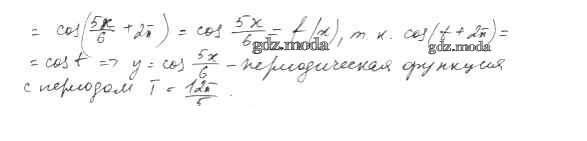 = cos(5x/6 + 2π) = cos 5x/6 = f(x), т. к. cos(t + 2π) =
gdz.moda
gdz.moda
= cos t => y = cos 5x/6 - периодическая функция
с периодом T = 12π/5.